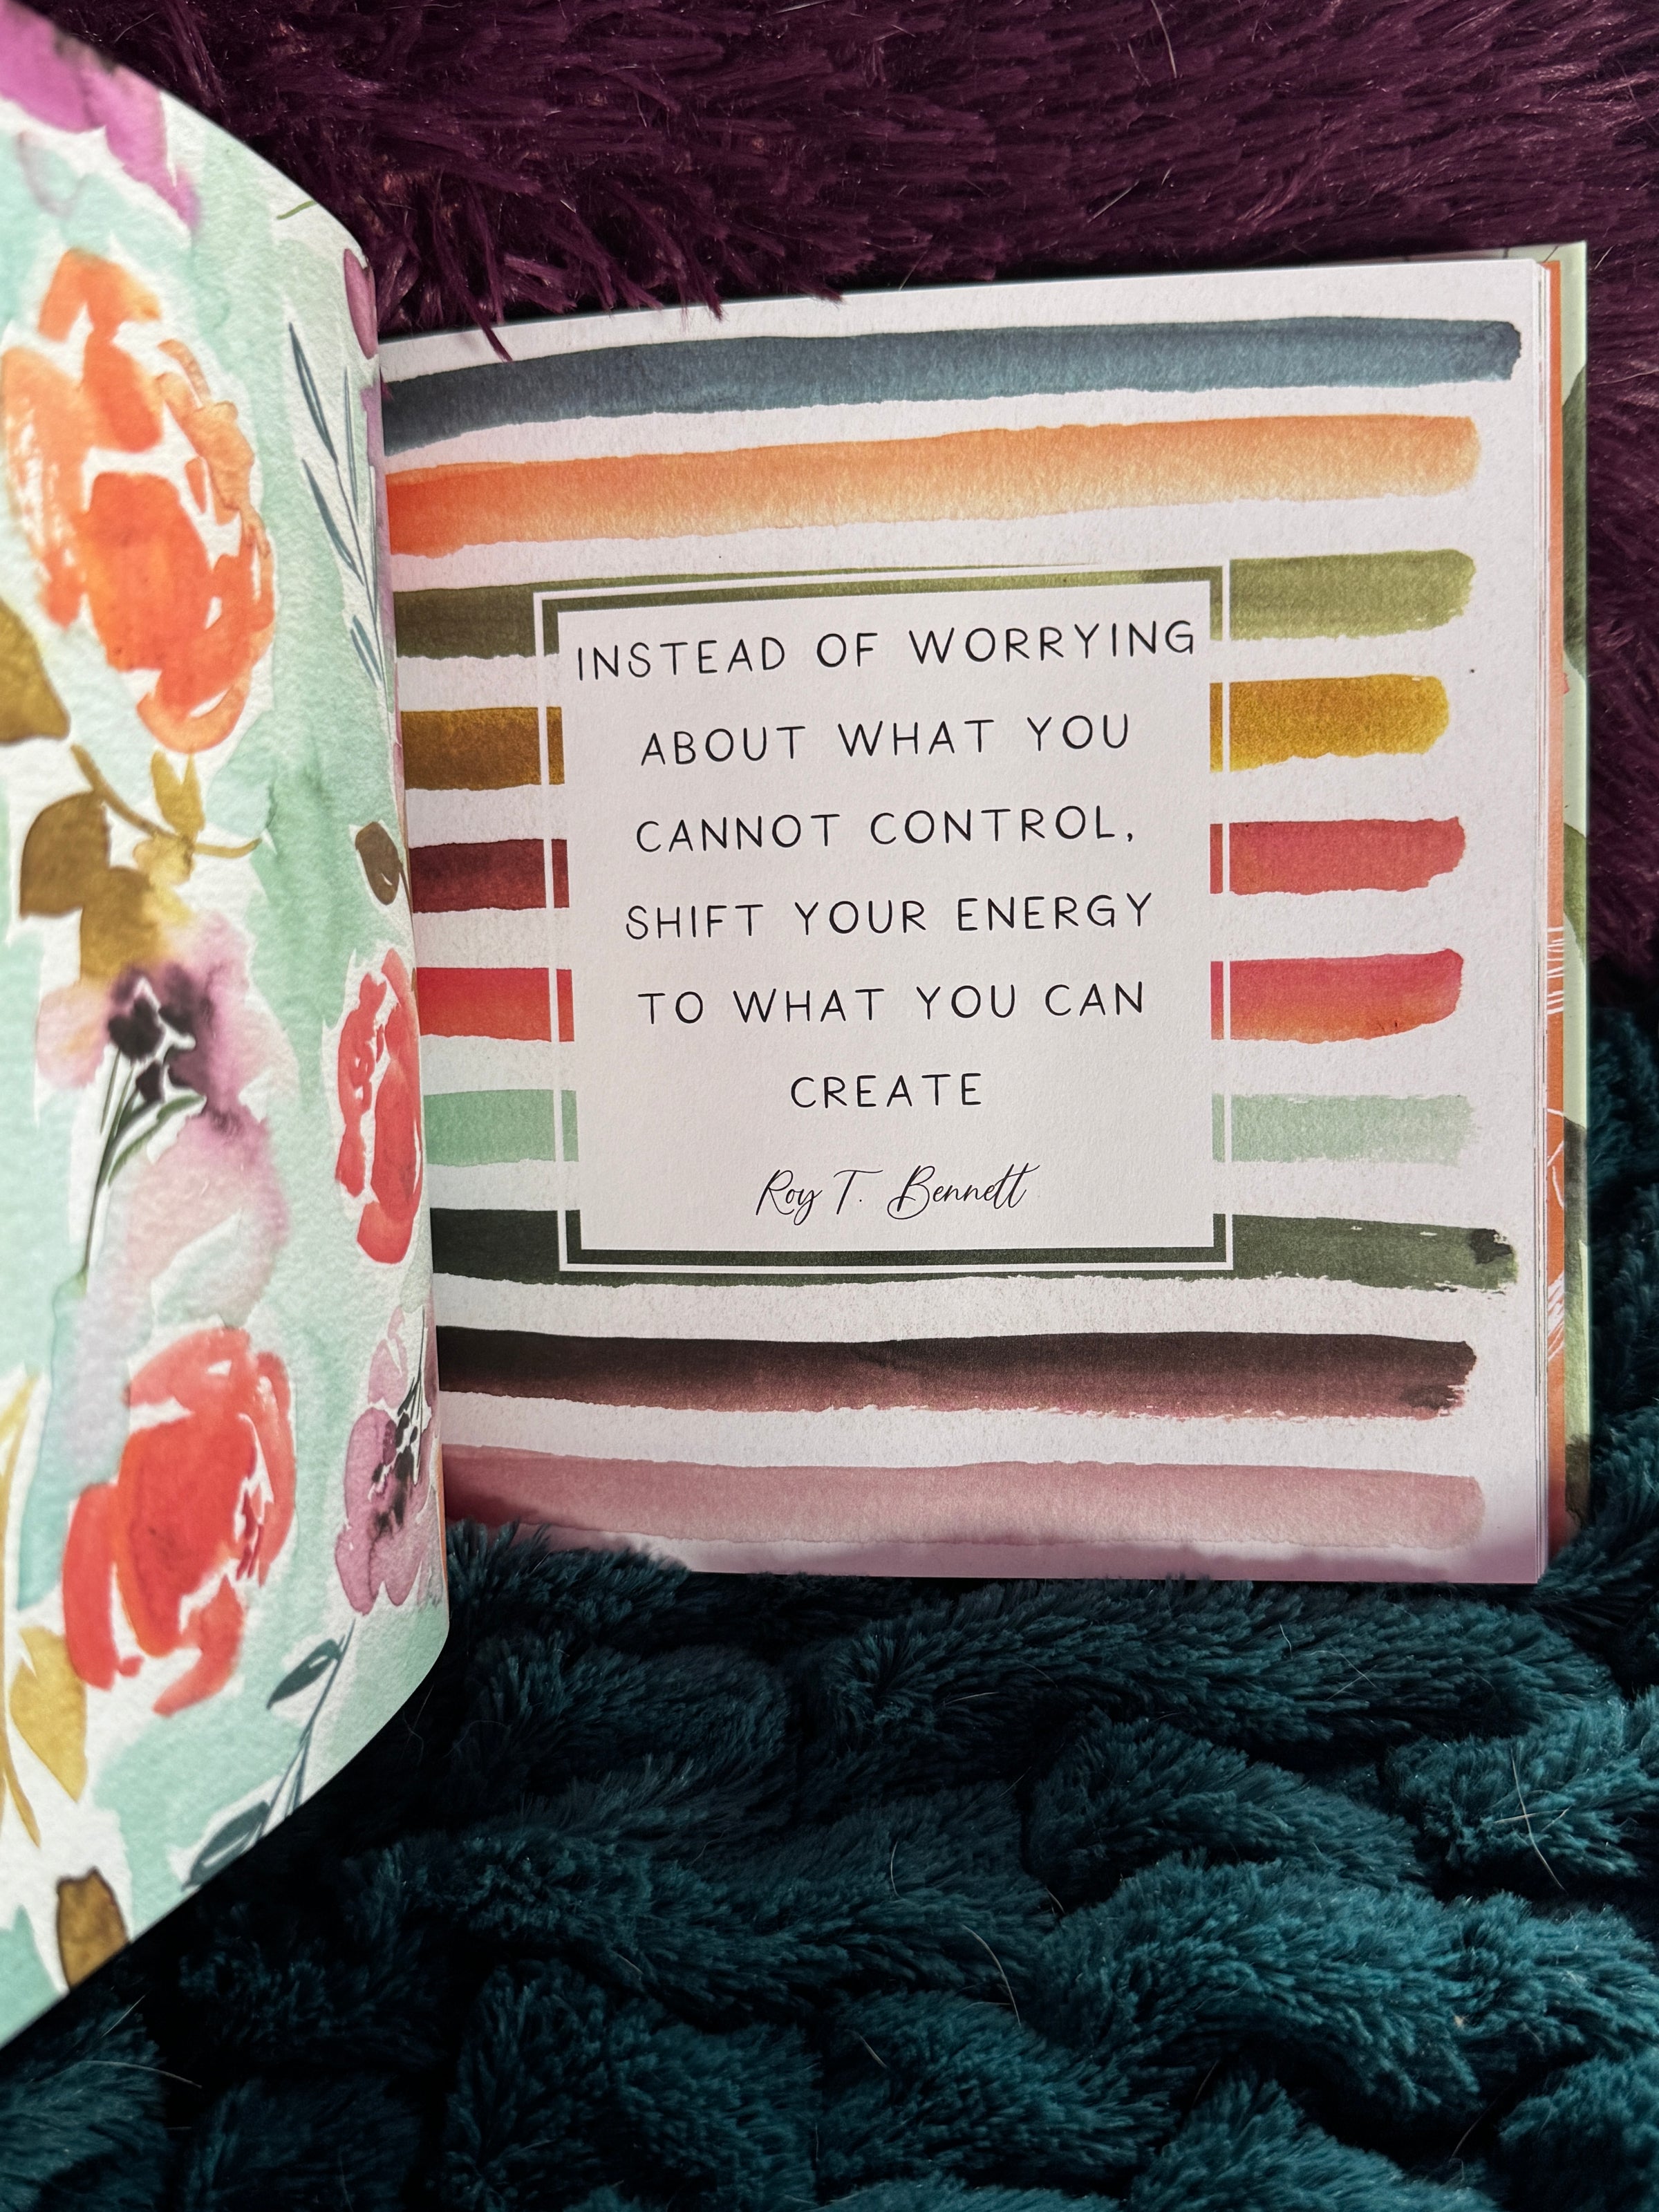 INSTEAD OF WORRYING
ABOUT WHAT YOU
CANNOT CONTROL,
SHIFT YOUR ENERGY
TO WHAT YOU CAN
CREATE
Roy T. Bennett